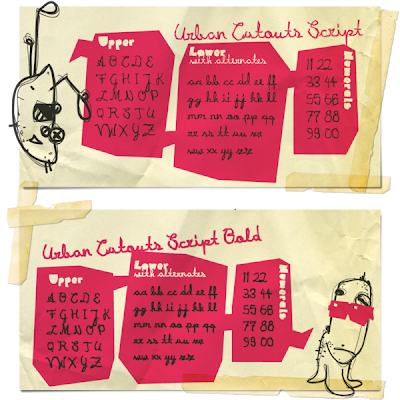 Urban Cutouts Script
Upper
A B C D E
F G H I J K
L M N O P
Q R S T U
V W X Y Z
Lower
with alternates
aa bb cc dd ee ff
gg hh ii jj kk ll
mm nn oo pp qq
rr ss tt uu vv
ww xx yy zz
Numerals
11 22
33 44
55 66
77 88
99 00
Urban Cutouts Script Bold
Upper
A B C D E
F G H I J K
L M N O P
Q R S T U
V W X Y Z
Lower
with alternates
aa bb cc dd ee ff
gg hh ii jj kk ll
mm nn oo pp qq
rr ss tt uu vv
ww xx yy zz
Numerals
11 22
33 44
55 66
77 88
99 00